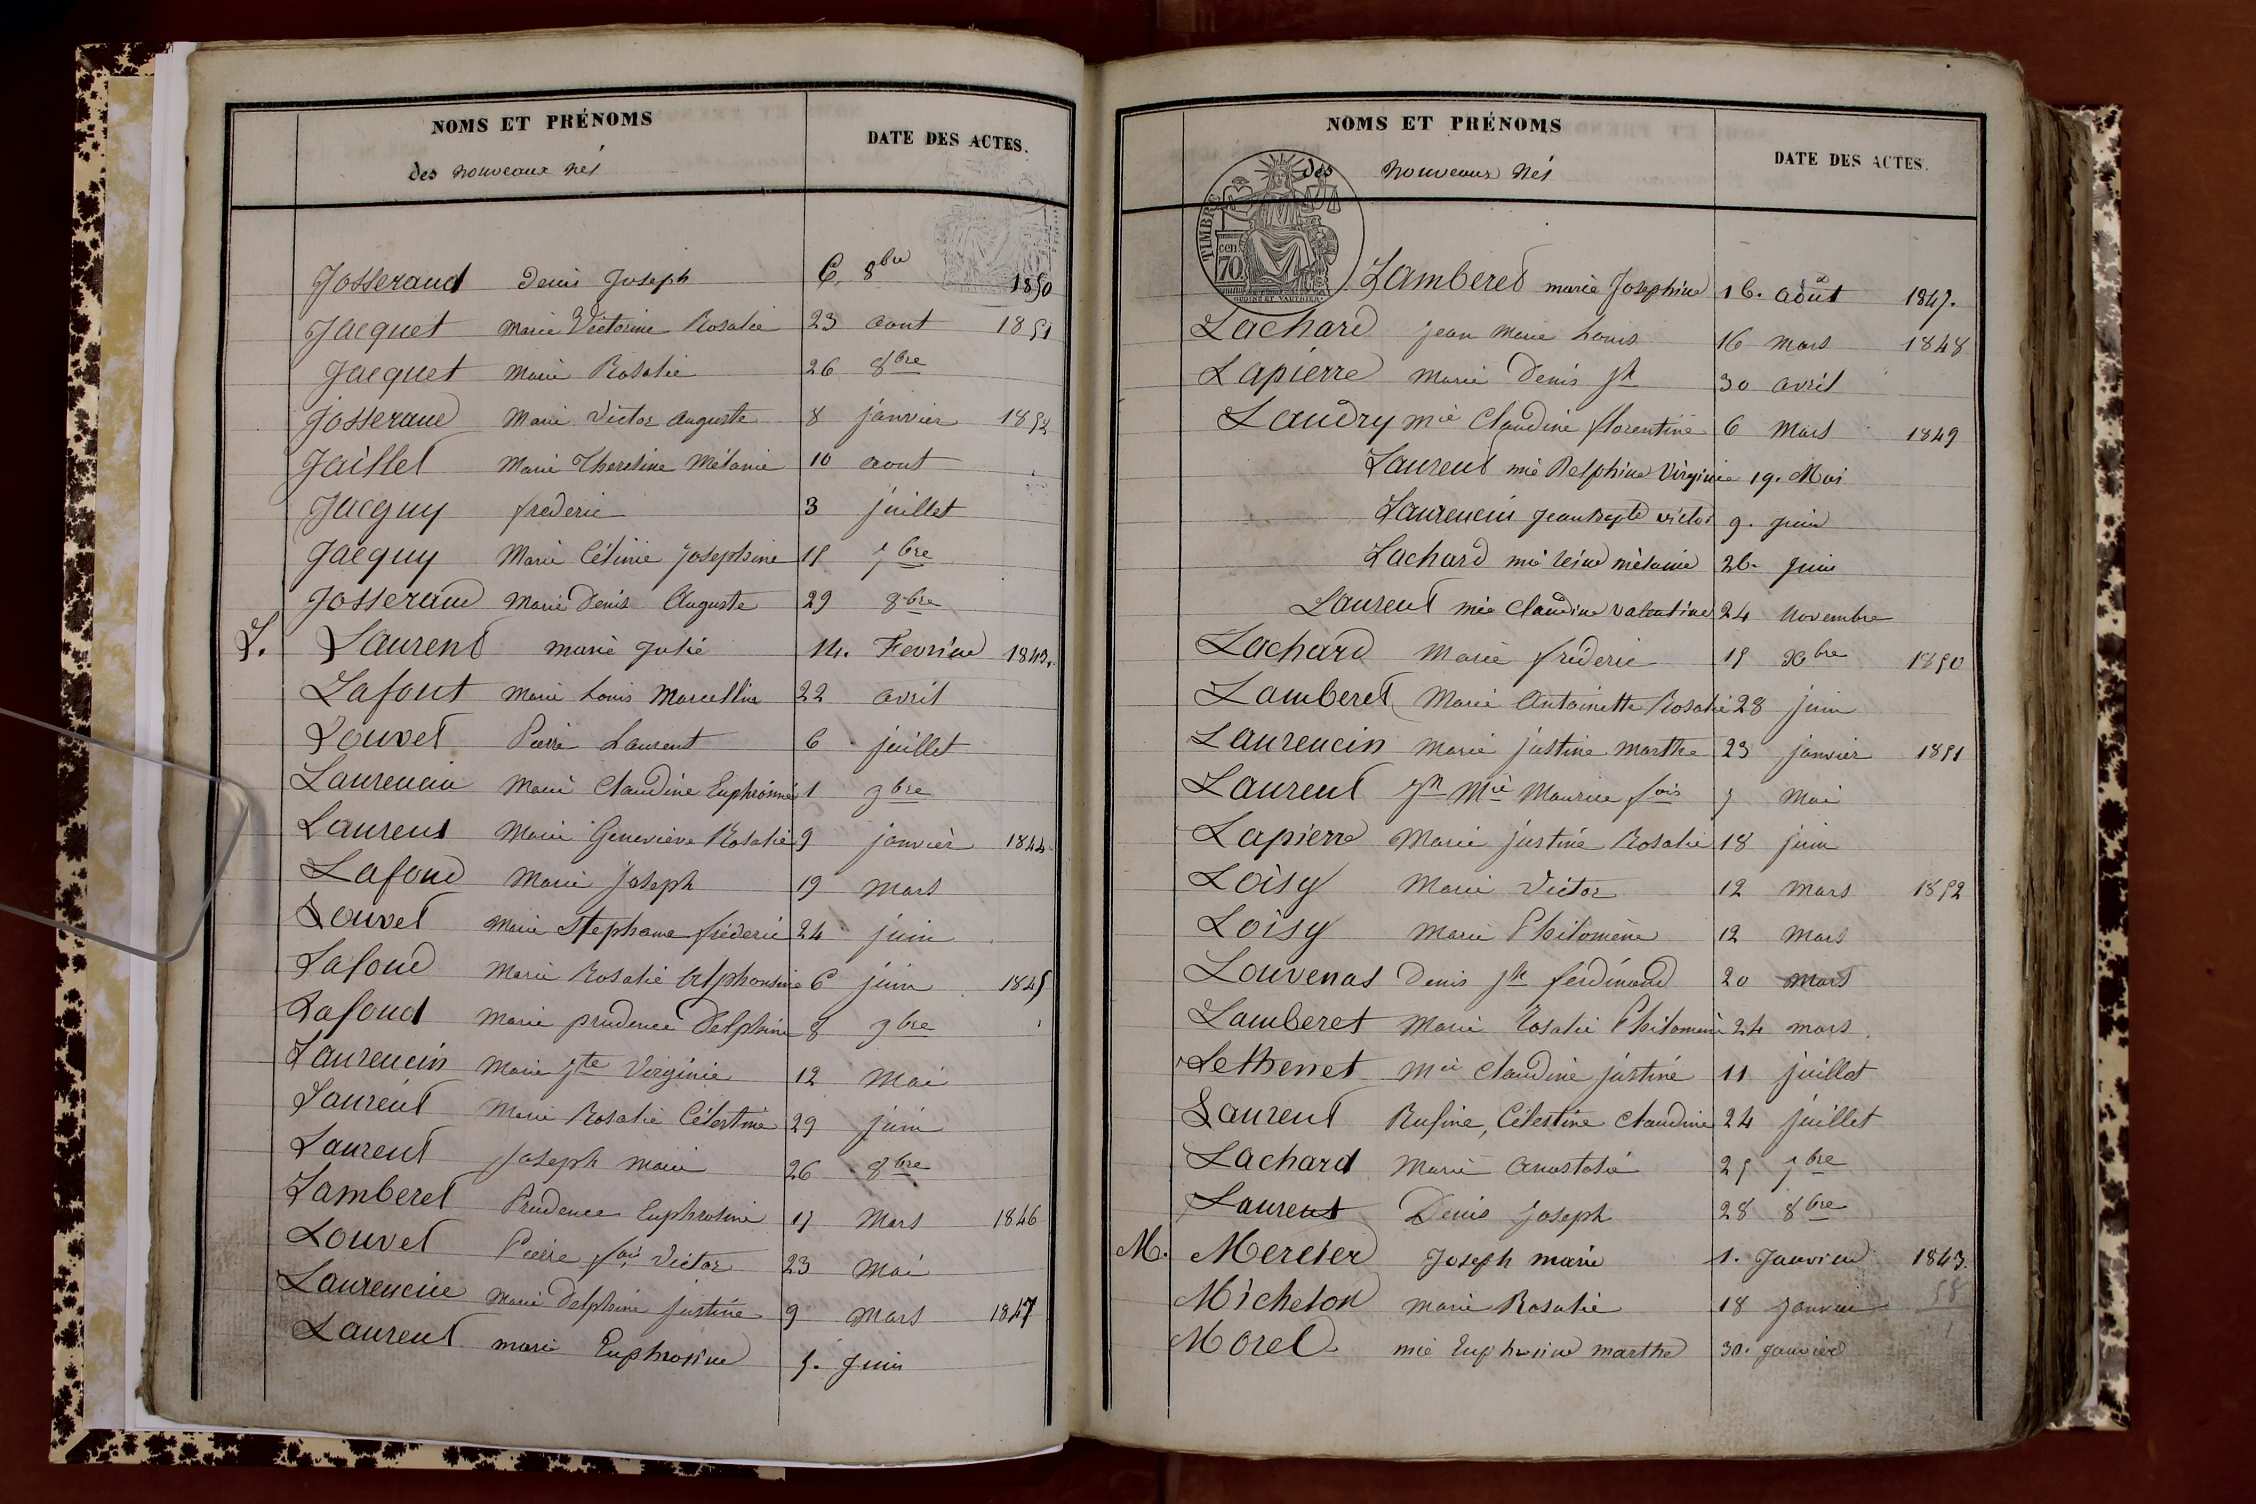 NOMS ET PRÉNOMS DATE DES ACTES.
des nouveaux nés
Josserand Denis Joseph 6. 8bre 1850
Jacquet Marie Victorine Rosalie 23 aout 1851
Jacquet Marie Rosalie 26 8bre
Josserand Marie Victor Auguste 8 janvier 1852
Jaillet Marie Mélanie 10 aout
Jacquy frederic 3 juillet
Jacquy Marie Josephine 15 7bre
Josserand Marie Denis Auguste 29 8bre
L. Laurent marie Julie 14. Fevrier 1843.
Lafont Marie Louis Marcellin 22 avril
Louvet Pierre Laurent 6 juillet
Laurencin Marie Claudine 1 9bre
Laurent Marie Geneviève Rosalie 9 janvier 1844
Lafond Marie Joseph 19 Mars
Louvet Marie fréderic 24 juin
Lafond Marie Rosalie Alphonsine 6 juin 1845
Lafond Marie prudence Delphine 8 9bre
Laurencin Marie Jte Virginie 12 Mai
Laurent Marie Rosalie Célestine 29 juin
Laurent Joseph Marie 26 8bre
Lamberet Prudence Euphrosine 17 Mars 1846
Louvet Pierre Victor 23 Mai
Laurencin Marie Delphine Justine 9 Mars 1847
Laurent marie Euphrosine 5. Juin
NOMS ET PRÉNOMS DATE DES ACTES.
des nouveaux nés
TIMBRE
70
Lamberet marie Josephine 16. août 1847.
Lachard Jean Marie Louis 16 Mars 1848
Lapierre Marie Denis Jh 30 avril
Landry Mie Claudine florentine 6 Mars 1849
Laurent mie Delphine Virginie 19. Mai
Laurencin Jean Bapte victor 9. Juin
Lachard mie reine mélanie 26. Juin
Laurent mie Claudine valentine 24 Novembre
Lachard Marie fréderic 15 Xbre 1850
Lamberet Marie Antoinette Rosalie 28 juin
Laurencin Marie justine Marthe 23 janvier 1851
Laurent Jn Mie Maurice fois 7 Mai
Lapierre Marie justine Rosalie 18 juin
Loisy Marie Victor 12 Mars 1852
Loisy Marie Philomène 12 Mars
Louvenas Denis Jh ferdinand 20 Mars
Lamberet Marie Rosalie Philomène 24 mars
Lethenet Mie Claudine justine 11 juillet
Laurent Rufine, Célestine Claudine 24 juillet
Lachard Marie Anastasie 25 7bre
Laurent Denis Joseph 28 8bre
M. Mercier Joseph marie 1. Janvier 1843.
Michelon Marie Rosalie 18 Janvier
Morel mie Euphrosine marthe 30. janvier